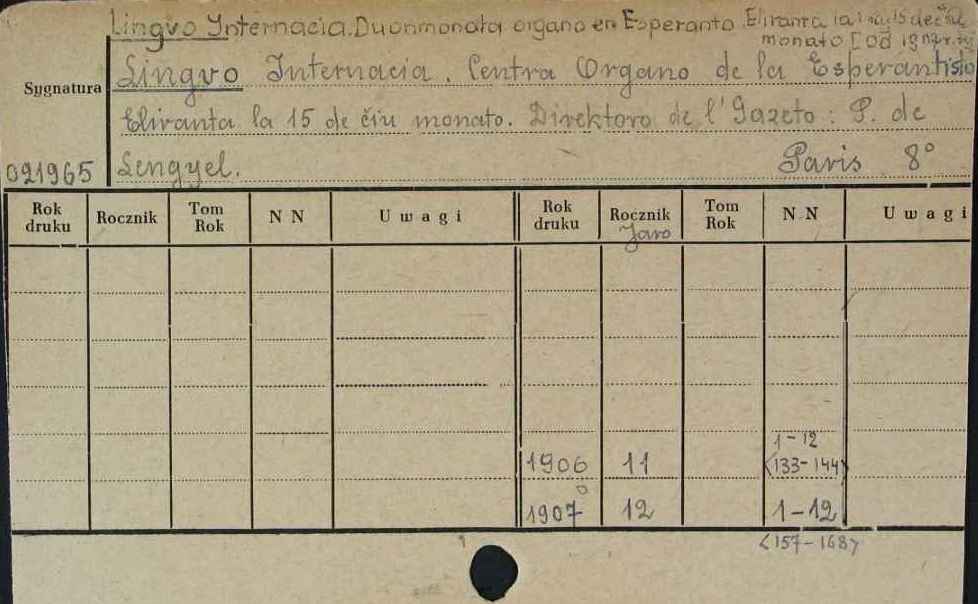 Lingvo Internacia. Duonmonata organo en Esperanto. Eliranta la 1 kaj 15 de
monato [Od 19
Sygnatura
Lingvo Internacia. Centra Organo de la Esperantisto
Eliranta la 15 de ĉiu monato. Direktoro de l' Gazeto: P. de
021965 Lengyel. Paris 8°
Rok druku Rocznik Tom Rok N N U w a g i Rok druku Rocznik Jaro Tom Rok N. N U w a g i
1-12
1906 11 <133-144>
1907 12 1-12
<157-168>